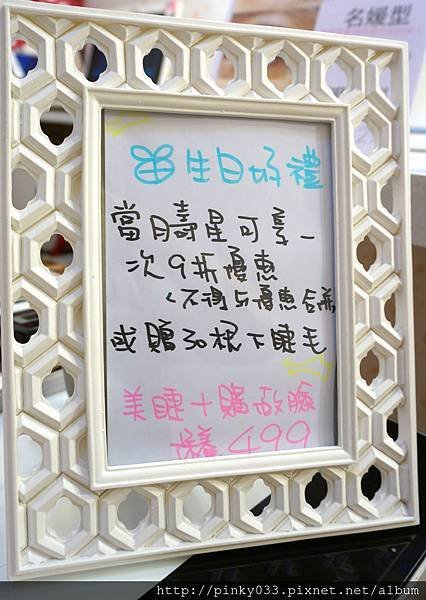 名媛型
生日好禮
當月壽星可享一
次9折優惠
(不得与優惠合併
或贈30根下睫毛
美睫+購敷臉
保養499
http://pinky033.pixnet.net/album